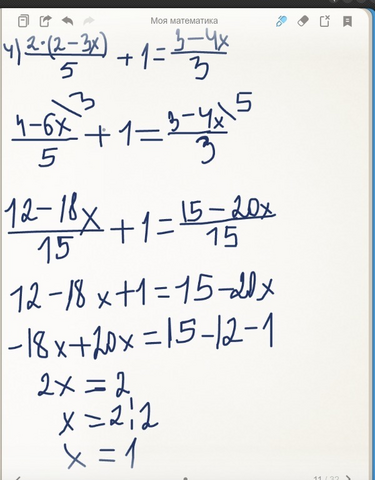 Моя математика
4) 2·(2-3x)/5 + 1 = 3-4x/3
4-6x\3/5 + 1 = 3-4x\5/3
12-18x/15 + 1 = 15-20x/15
12-18x+1=15-20x
-18x+20x=15-12-1
2x=2
x=2:2
x=1